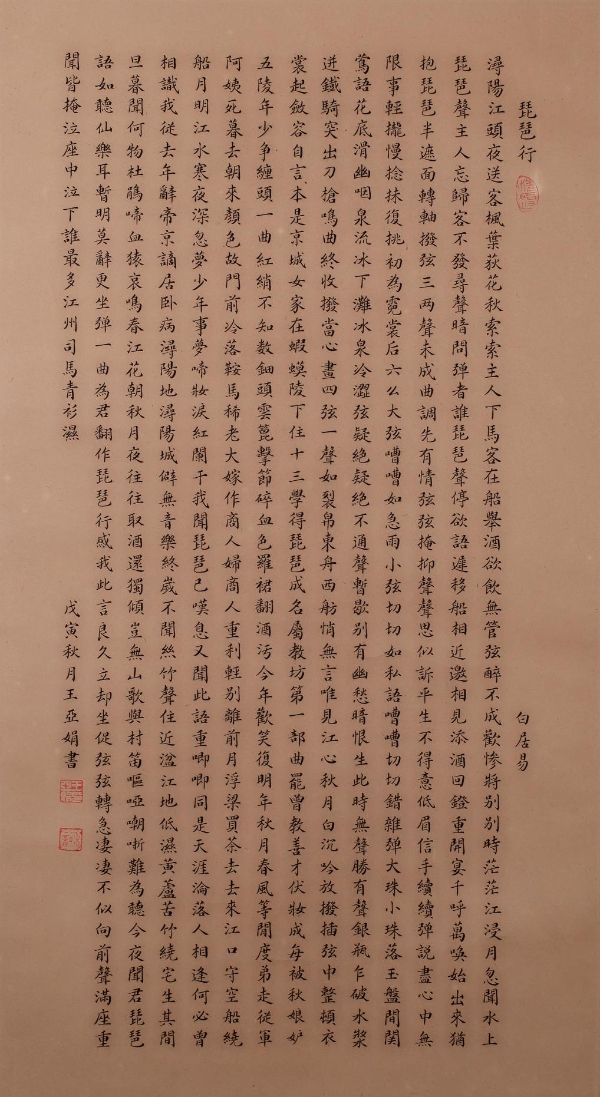 琵琶行 白居易
潯陽江頭夜送客楓葉荻花秋索索主人下馬客在船舉酒欲飲無管弦醉不成歡慘將别别時茫茫江浸月忽聞水上
琵琶聲主人忘歸客不發尋聲暗問彈者誰琵琶聲停欲語遲移船相近邀相見添酒回鐙重開宴千呼萬喚始出來猶
抱琵琶半遮面轉軸撥弦三兩聲未成曲調先有情弦弦掩抑聲聲思似訴平生不得意低眉信手續續彈說盡心中無
限事輕攏慢捻抹復挑初為霓裳后六么大弦嘈嘈如急雨小弦切切如私語嘈嘈切切錯雜彈大珠小珠落玉盤間関
鶯語花底滑幽咽泉流冰下灘冰泉冷澀弦疑絶疑絶不通聲暫歇别有幽愁暗恨生此時無聲勝有聲銀瓶乍破水漿
迸鐵騎突出刀槍鳴曲終收撥當心畫四弦一聲如裂帛東舟西舫悄無言唯見江心秋月白沉吟放撥插弦中整頓衣
裳起斂容自言本是京城女家在蝦蟆陵下住十三學得琵琶成名屬教坊第一部曲罷曾教善才伏妝成每被秋娘妒
五陵年少爭纏頭一曲紅綃不知數鈿頭雲篦擊節碎血色羅裙翻酒汚今年歡笑復明年秋月春風等閒度弟走從軍
阿姨死暮去朝來顔色故門前冷落鞍馬稀老大嫁作商人婦商人重利輕别離前月浮梁買茶去去來江口守空船繞
船月明江水寒夜深忽夢少年事夢啼妝淚紅闌干我聞琵琶已嘆息又聞此語重唧唧同是天涯淪落人相逢何必曾
相識我從去年辭帝京謫居卧病潯陽地潯陽城僻無音樂終歲不聞絲竹聲住近湓江地低濕黃蘆苦竹繞宅生其間
旦暮聞何物杜鵑啼血猿哀鳴春江花朝秋月夜往往取酒還獨傾豈無山歌與村笛嘔啞嘲哳難為聽今夜聞君琵琶
語如聽仙樂耳暫明莫辭更坐彈一曲為君翻作琵琶行感我此言良久立却坐促弦弦轉急凄凄不似向前聲滿座重
聞皆掩泣座中泣下誰最多江州司馬青衫濕 戊寅秋月王亞娟書